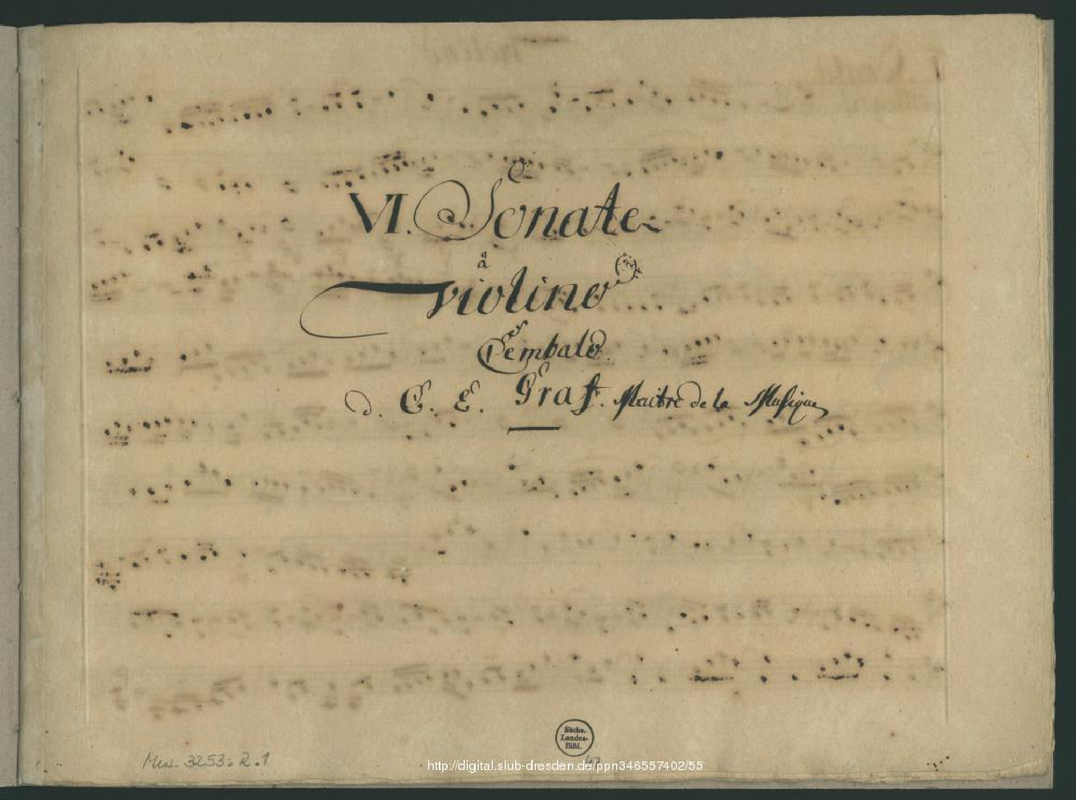 VI. Sonate
â
Violino
e
Cembalo.
d. C. E. Graf. Maitre de la Musique
Sächs.
Landes-
Bibl.
Mus. 3253. 2. 1
http://digital.slub-dresden.de/ppn346557402/55